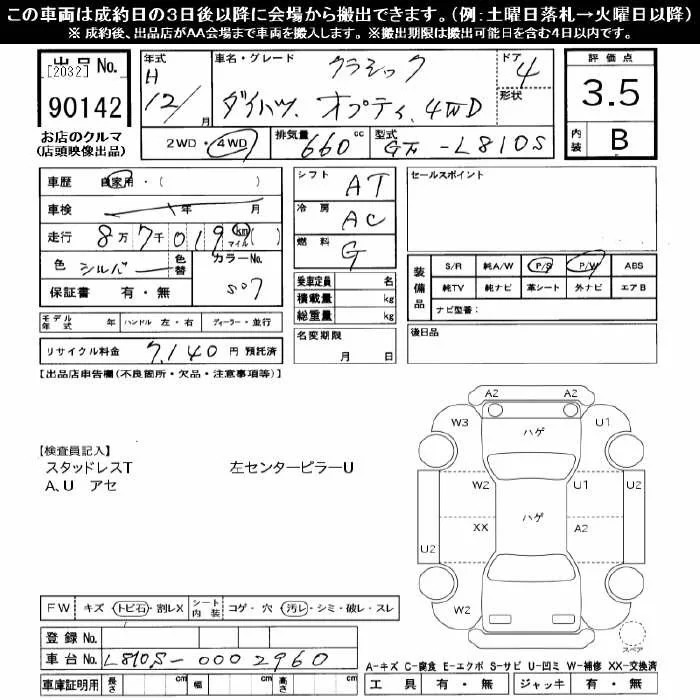 この車両は成約日の3日後以降に会場から搬出できます。(例:土曜日落札→火曜日以降)
※ 成約後、出品店がAA会場まで車両を搬入します。※搬出期限は搬出可能日を含む4日以内です。
出品No.
[2032]
90142
お店のクルマ
(店頭映像出品)
年式
H
12/月
車名・グレード
クラシック
ダイハツ. オプティ. 4WD
ドア
4
形状
評価点
3.5
内装
B
2WD・4WD
排気量 660 cc
型式 -L810S
車歴 自家用・( )
車検 年 月
走行 8万7千019 km マイル ( )
色 シルバー
色替
カラーNo.
507
保証書 有・無
シフト AT
冷房 AC
燃料 G
乗車定員 名
積載量 kg
総重量 kg
セールスポイント
装備品
S/R 純A/W P/S P/W ABS
純TV 純ナビ 革シート 外ナビ エアB
ナビ型番:
モデル年式 年 ハンドル 左・右 ディーラー・並行
リサイクル料金 7,140 円 預託済
名変期限
月 日
後日品
【出品店申告欄(不良箇所・欠品・注意事項等)】
【検査員記入】
スタッドレスT 左センターピラーU
A、U アセ
A2 A2
W3 ハゲ U1
W2 U1 U2
XX ハゲ A2
U2
W2
スペア
FW キズ・トビ石・割レX
シート内装 コゲ・穴・汚レ・シミ・破レ・スレ
登録No.
車台No. L810S-0002960
車庫証明用 長さ cm 幅 cm 高さ cm
A-キズ C-腐食 E-エクボ S-サビ U-凹ミ W-補修 XX-交換済
工具 有・無 ジャッキ 有・無